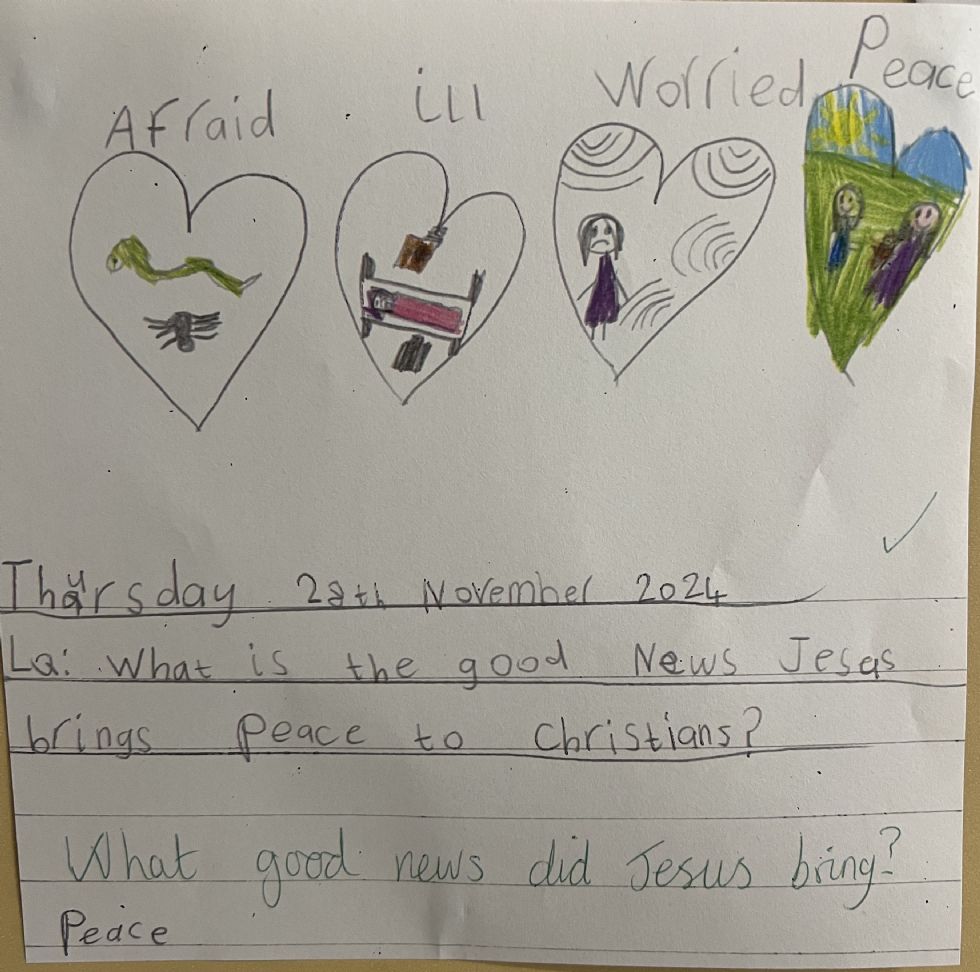 Afraid ill Worried Peace
Thursday 28th November 2024
Lq: What is the good News Jesus
brings Peace to Christians?
What good news did Jesus bring?
Peace